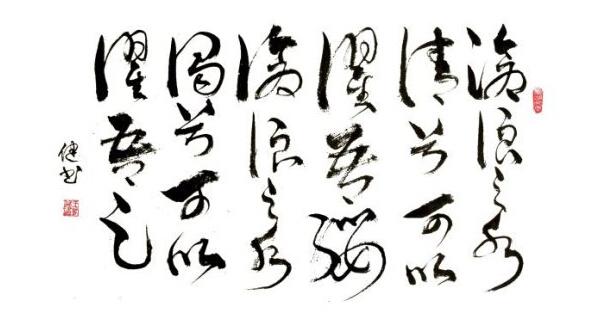 滄浪之水
清兮可以
濯吾纓
滄浪之水
濁兮可以
濯吾足
健书